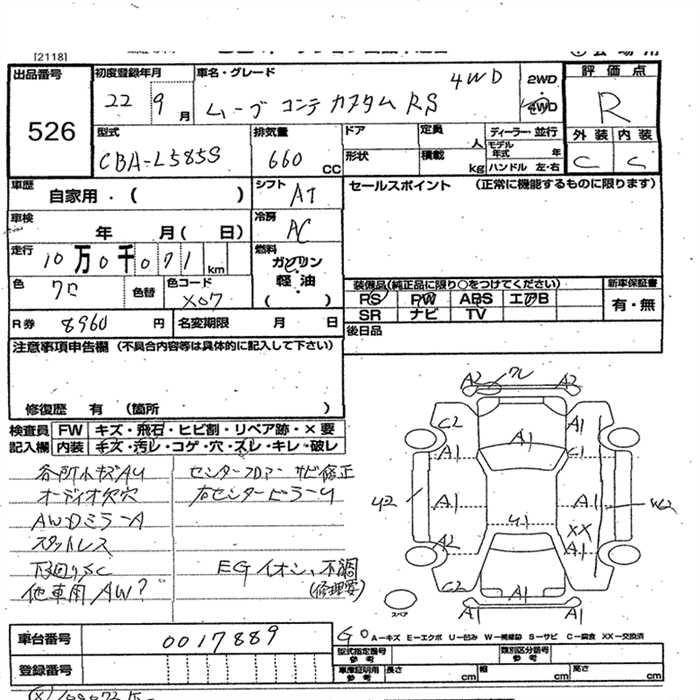 [2118]
出品番号 初度登録年月 車名・グレード 4WD 2WD 4WD 評価点
526 22 9月 ムーブ コンテ カスタム RS R
型式 排気量 ドア 定員 人 ディーラー・並行 外装 内装
CBA-L585S 660 CC 形状 積載 kg モデル年式 年 ハンドル 左・右 C C
車歴 自家用・( ) シフト AT セールスポイント (正常に機能するものに限ります)
車検 年 月( 日) 冷房 AC
走行 10万0千071 km 燃料 ガソリン・軽油 ( )
色 クロ 色替 色コード X07
装備品(純正品に限り○をつけてください) 新車保証書
PS PW ABS エアB 有・無
SR ナビ TV
R券 8960円 名変期限 月 日 後日品
注意事項申告欄 (不具合内容等は具体的に記入して下さい)
修復歴 有 (箇所 )
検査員 FW キズ・飛石・ヒビ割・リペア跡・×要
記入欄 内装 キズ・汚レ・コゲ・穴・スレ・キレ・破レ
各所小キズAU センターフロアー サビ修正
オーディオ欠穴 右センターピラーU
AWDミラーA
スタットレス
下回りSC EGイオン、不調
他車用AW? (修理要)
A2 ワレ A2
C2 A1 A1
A1 C1
U2 A1 A1 W2
U1 XX
A2 A1
C2
A1 A1
スペア
車台番号 0017889 G○ A-キズ E-エクボ U-凹み W-補修跡 S-サビ C-腐食 XX-交換済
型式指定番号 参考 類別区分番号 参考
登録番号 車庫証明 参考 長さ cm 幅 cm 高さ cm